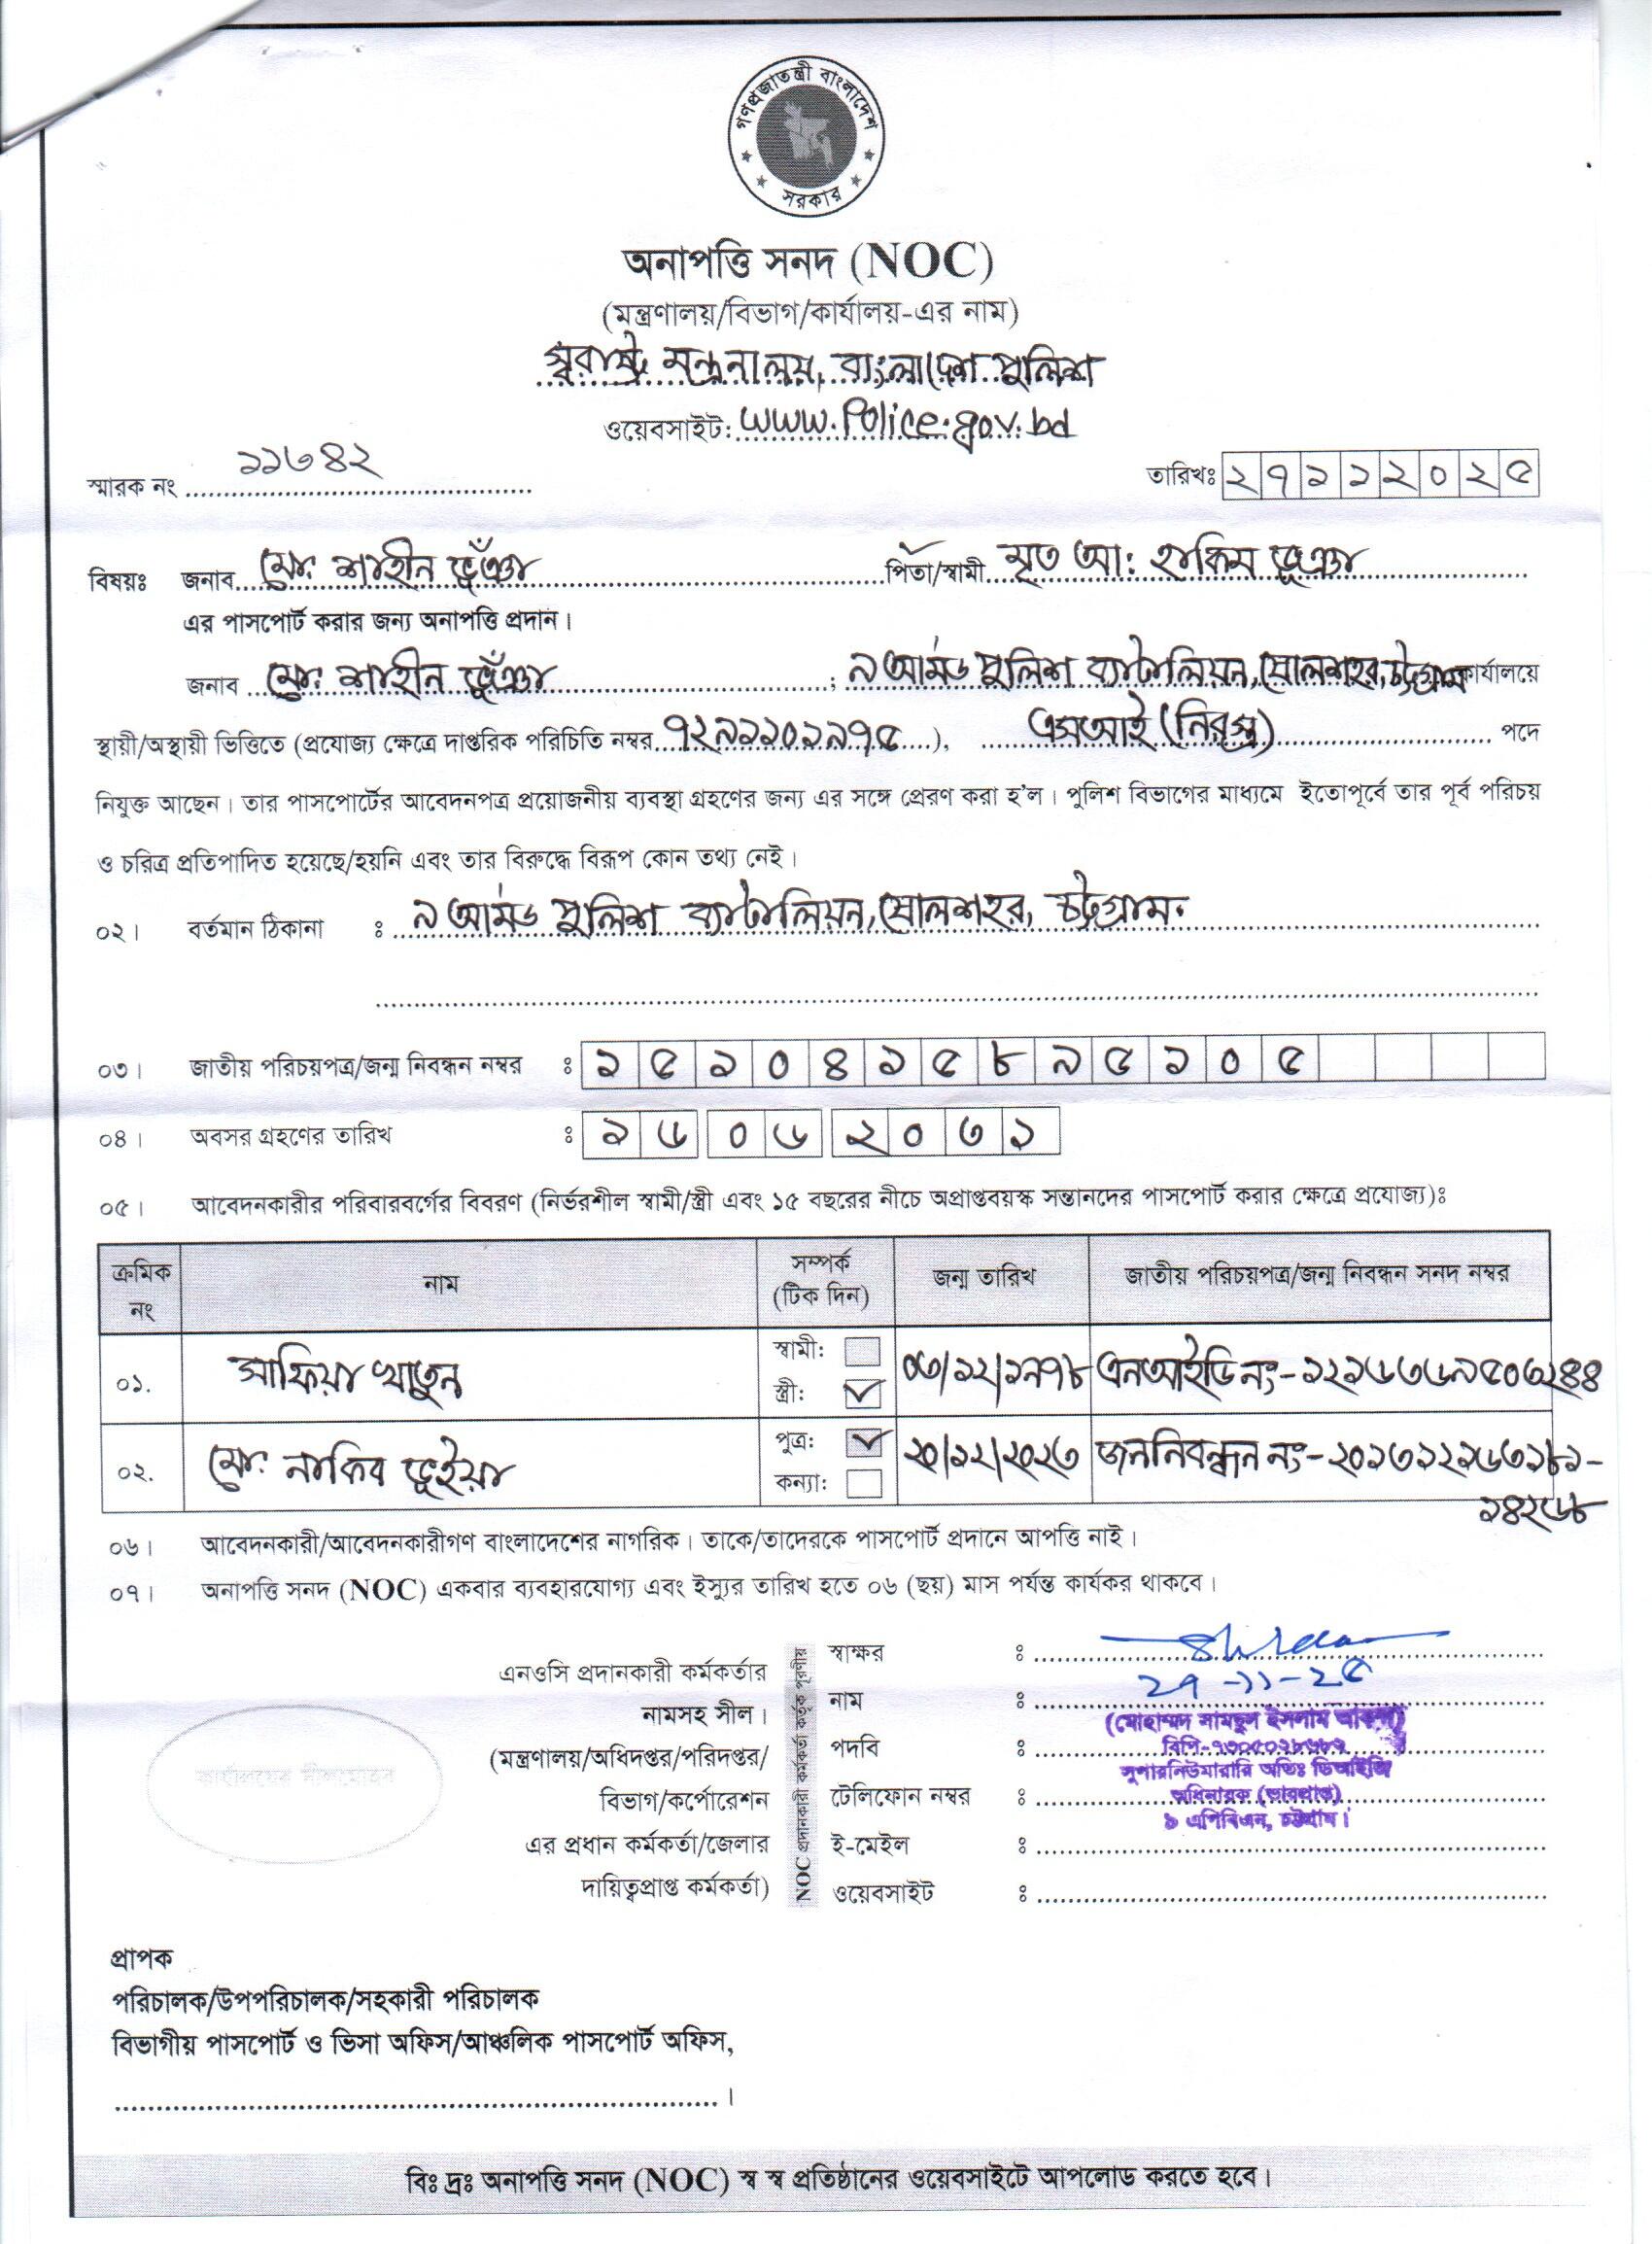 গণপ্রজাতন্ত্রী বাংলাদেশ
সরকার
অনাপত্তি সনদ (NOC)
(মন্ত্রণালয়/বিভাগ/কার্যালয়-এর নাম)
স্বরাষ্ট্র মন্ত্রনালয়, বাংলাদেশ পুলিশ
ওয়েবসাইট: www.Police.gov.bd
স্মারক নং ১১৬৪২ তারিখঃ ২৭১১২০২৫
বিষয়ঃ জনাব মো: শাহীন ভূঁঞা পিতা/স্বামী মৃত আ: হাকিম ভূঞা
এর পাসপোর্ট করার জন্য অনাপত্তি প্রদান।
জনাব মো: শাহীন ভূঁঞা ; ৯ আর্মড পুলিশ ব্যাটালিয়ন, ষোলশহর, চট্টগ্রাম কার্যালয়ে
স্থায়ী/অস্থায়ী ভিত্তিতে (প্রযোজ্য ক্ষেত্রে দাপ্তরিক পরিচিতি নম্বর ৭২৯১২০১৯৭৫), এসআই (নিরস্ত্র) পদে
নিযুক্ত আছেন। তার পাসপোর্টের আবেদনপত্র প্রয়োজনীয় ব্যবস্থা গ্রহণের জন্য এর সঙ্গে প্রেরণ করা হ'ল। পুলিশ বিভাগের মাধ্যমে ইতোপূর্বে তার পূর্ব পরিচয়
ও চরিত্র প্রতিপাদিত হয়েছে/হয়নি এবং তার বিরুদ্ধে বিরূপ কোন তথ্য নেই।
০২। বর্তমান ঠিকানা : ৯ আর্মড পুলিশ ব্যাটালিয়ন, ষোলশহর, চট্টগ্রাম.
০৩। জাতীয় পরিচয়পত্র/জন্ম নিবন্ধন নম্বর : ১৫১০৪১৫৮৯৫১০৫
০৪। অবসর গ্রহণের তারিখ : ১৬ ০৬ ২০৩১
০৫। আবেদনকারীর পরিবারবর্গের বিবরণ (নির্ভরশীল স্বামী/স্ত্রী এবং ১৫ বছরের নীচে অপ্রাপ্তবয়স্ক সন্তানদের পাসপোর্ট করার ক্ষেত্রে প্রযোজ্য)ঃ
ক্রমিক নং নাম সম্পর্ক (টিক দিন) জন্ম তারিখ জাতীয় পরিচয়পত্র/জন্ম নিবন্ধন সনদ নম্বর
০১. সাফিয়া খাতুন স্বামী: স্ত্রী: ✓ ০৩/১২/১৯৭৮ এনআইডি নং-১২১৬৩৬৯৫০৩২৪৪
০২. মো: নাকিব ভূইয়া পুত্র: ✓ কন্যা: ২০/১২/২০১৩ জন্মনিবন্ধন নং-২০১৩১২১৬৩১৮১-
১৪২৬৮
০৬। আবেদনকারী/আবেদনকারীগণ বাংলাদেশের নাগরিক। তাকে/তাদেরকে পাসপোর্ট প্রদানে আপত্তি নাই।
০৭। অনাপত্তি সনদ (NOC) একবার ব্যবহারযোগ্য এবং ইস্যুর তারিখ হতে ০৬ (ছয়) মাস পর্যন্ত কার্যকর থাকবে।
এনওসি প্রদানকারী কর্মকর্তার
নামসহ সীল।
(মন্ত্রণালয়/অধিদপ্তর/পরিদপ্তর/
বিভাগ/কর্পোরেশন
এর প্রধান কর্মকর্তা/জেলার
দায়িত্বপ্রাপ্ত কর্মকর্তা)
কার্যালয়ের সীলমোহর
NOC প্রদানকারী কর্মকর্তা কর্তৃক পূরণীয়
স্বাক্ষর :
২৭-১১-২৫
নাম :
(মোহাম্মদ সামছুল ইসলাম
পদবি :
সুপারনিউমারারি অতিঃ ডিআইজি
টেলিফোন নম্বর :
অধিনায়ক (ভারপ্রাপ্ত)
৯ এপিবিএন, চট্টগ্রাম।
ই-মেইল :
ওয়েবসাইট :
প্রাপক
পরিচালক/উপপরিচালক/সহকারী পরিচালক
বিভাগীয় পাসপোর্ট ও ভিসা অফিস/আঞ্চলিক পাসপোর্ট অফিস,
।
বিঃ দ্রঃ অনাপত্তি সনদ (NOC) স্ব স্ব প্রতিষ্ঠানের ওয়েবসাইটে আপলোড করতে হবে।